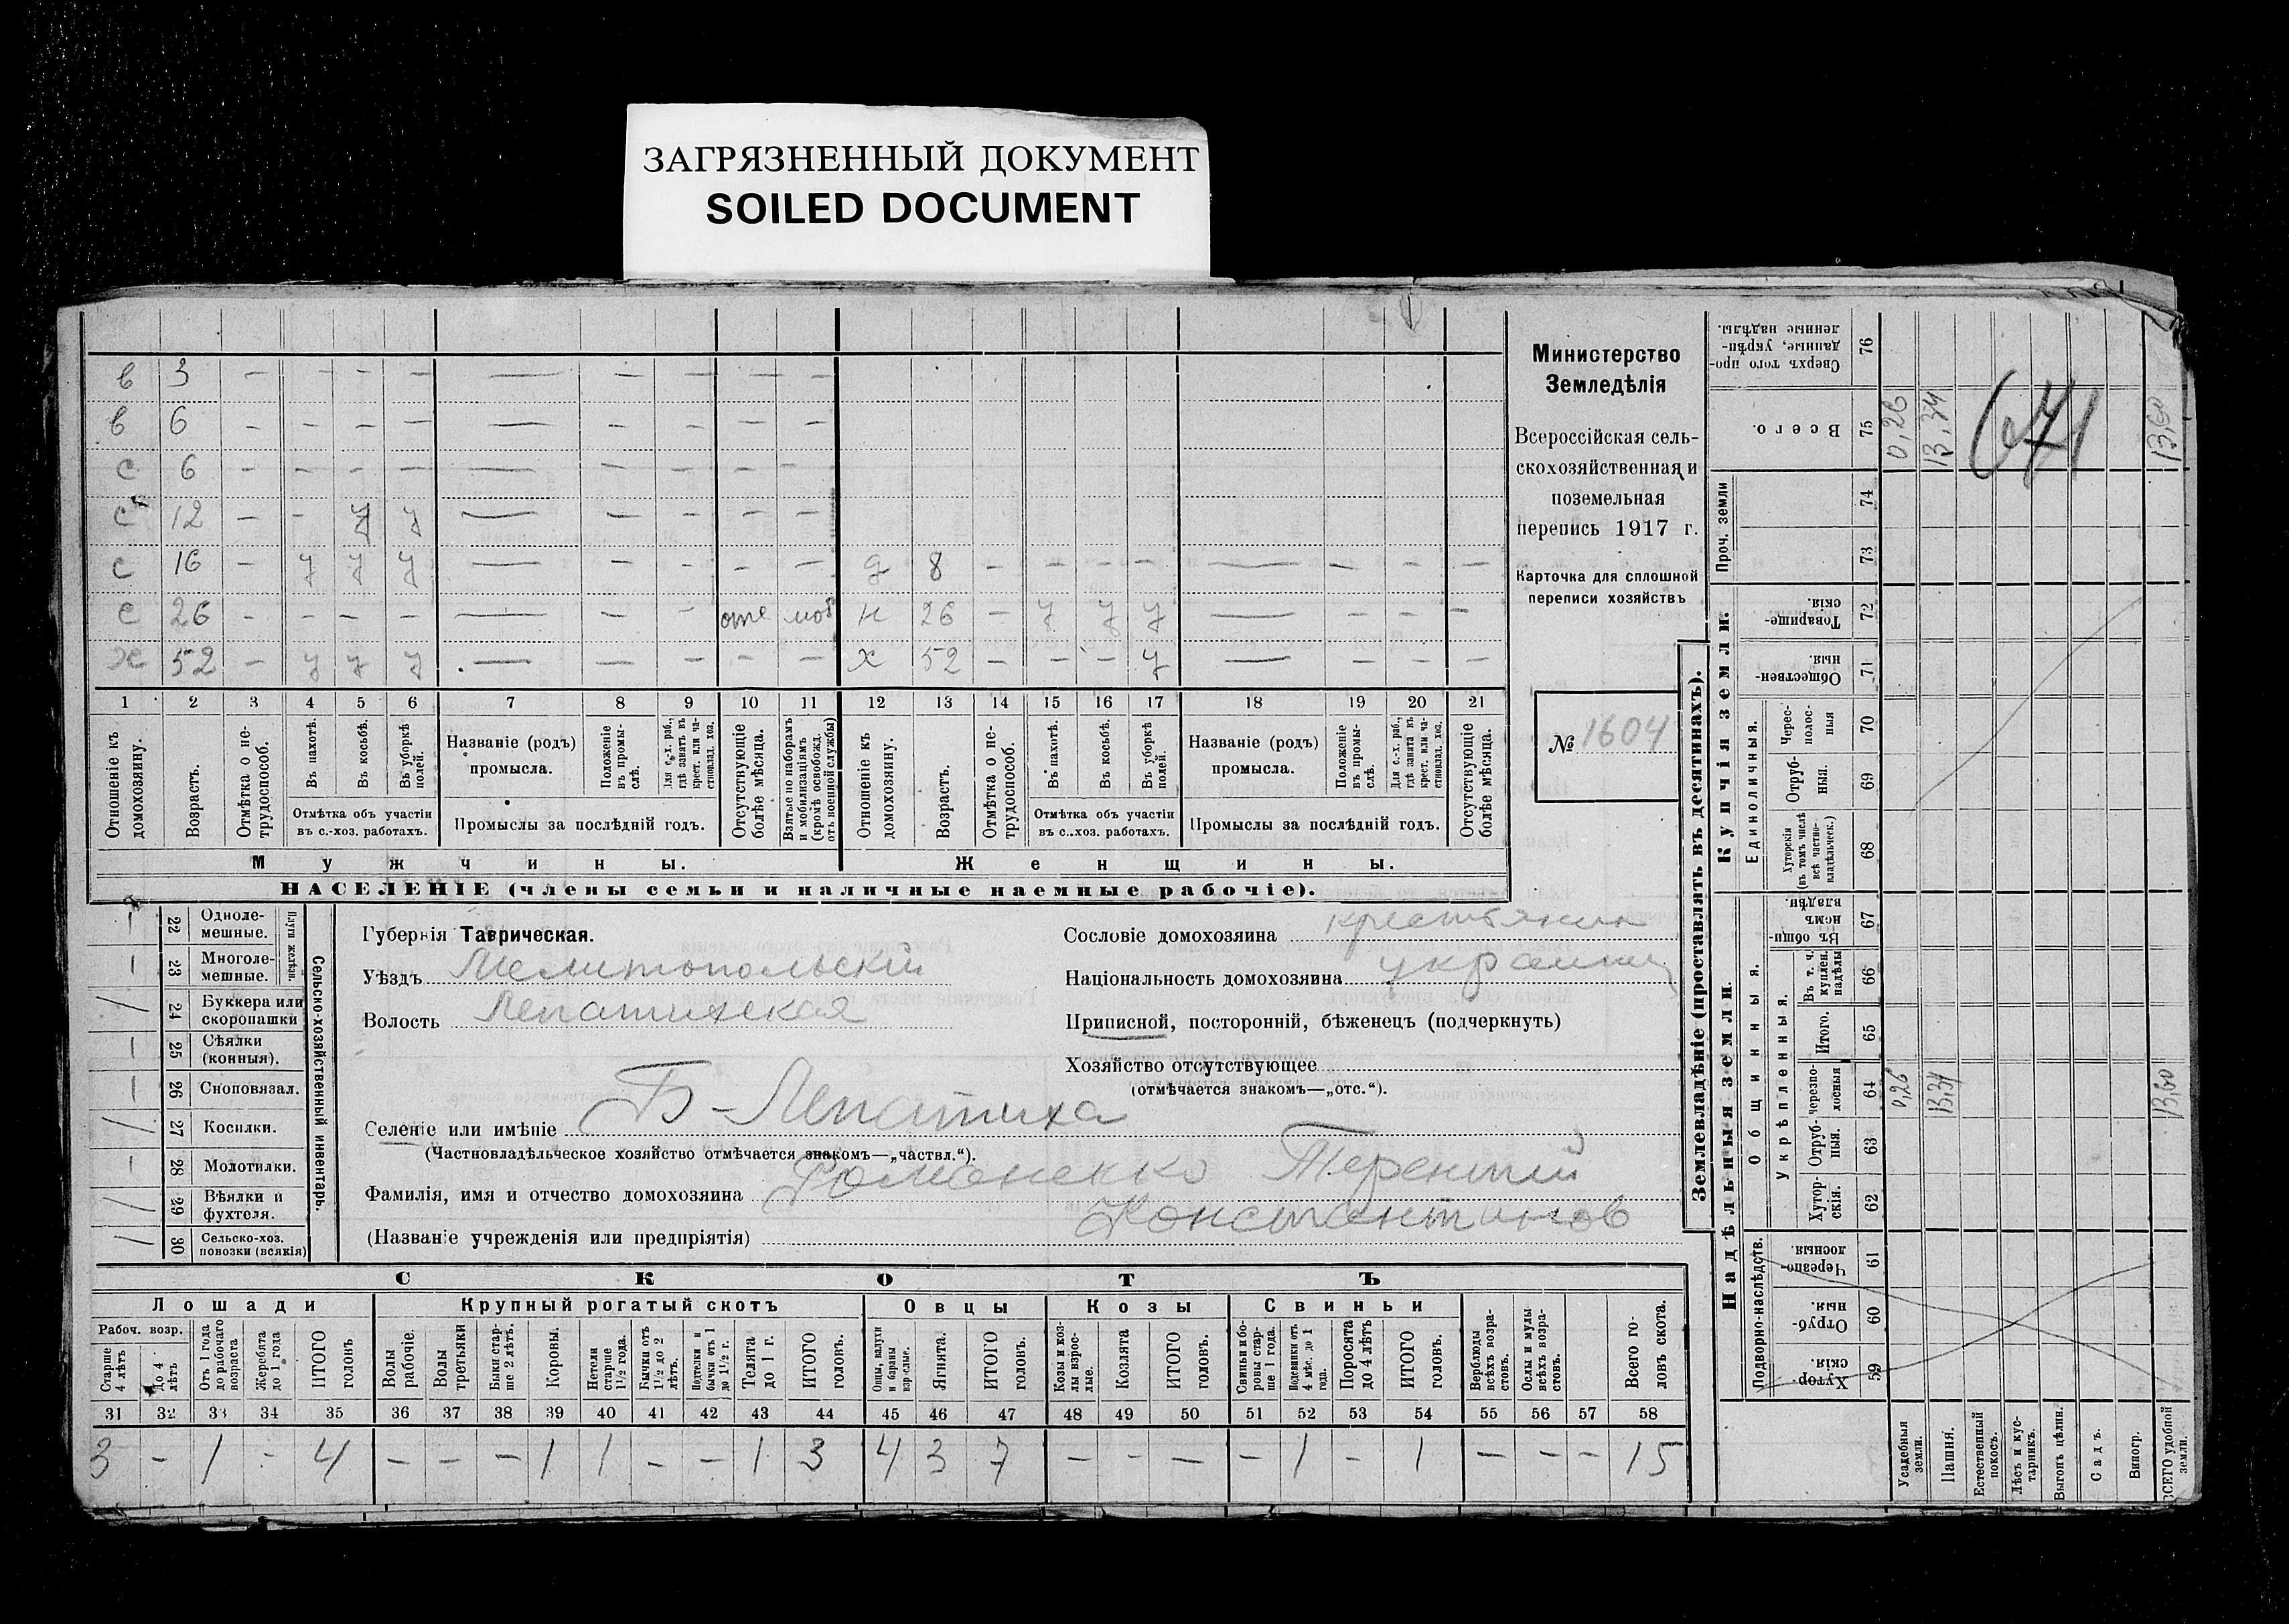 ЗАГРЯЗНЕННЫЙ ДОКУМЕНТ
SOILED DOCUMENT
в 3 — — — — — — — — —
в 6 — — — — — — — — —
с 6 — — — — — — — — —
с 12 — — у у — — — — —
с 16 — у у у — — — — — д 8 — — — — — — — —
с 26 — — — — — — — отс моб н 26 — у у у — — — —
х 52 — у у у — — — — — х 52 — — — у — — — —
1 2 3 4 5 6 7 8 9 10 11 12 13 14 15 16 17 18 19 20 21
Отношеніе къ домохозяину.
Возрастъ.
Отмѣтка о не-трудоспособ.
Въ пахотѣ.
Въ косьбѣ.
Въ уборкѣ полей.
Отмѣтка объ участіи
въ с.-хоз. работахъ.
Названіе (родъ)
промысла.
Положеніе въ промы-слѣ.
Для с.-х. раб., гдѣ занятъ въ крест. или ча-стновлад. хоз.
Промыслы за послѣдній годъ.
Отсутствующіе болѣе мѣсяца.
Взятые по наборамъ и мобилизаціямъ (кромѣ освобожд. отъ военной службы)
Отношеніе къ домохозяину.
Возрастъ.
Отмѣтка о не-трудоспособ.
Въ пахотѣ.
Въ косьбѣ.
Въ уборкѣ полей.
Отмѣтка объ участіи
въ с.-хоз. работахъ.
Названіе (родъ)
промысла.
Положеніе въ промы-слѣ.
Для с.-х. раб., гдѣ занята въ крест. или ча-стновлад. хоз.
Промыслы за послѣдній годъ.
Отсутствующіе болѣе мѣсяца.
Мужчины. Женщины.
НАСЕЛЕНІЕ (члены семьи и наличные наемные рабочіе).
Министерство
Земледѣлія
Всероссійская сель-
скохозяйственная и
поземельная
перепись 1917 г.
Карточка для сплошной
переписи хозяйствъ
№ 1604
Сельско-хозяйственный инвентарь.
Плуги желѣзн.
22 Одноле-мешные.
23 Многоле-мешные.
24 Буккера или скоропашки
25 Сѣялки (конныя).
26 Сноповязал.
27 Косилки.
28 Молотилки.
29 Вѣялки и фухтеля.
30 Сельско-хоз. повозки (всякія)
Губернія Таврическая.
Уѣздъ Мелитопольскій
Волость Лепатихская
Сословіе домохозяина крестьянин
Національность домохозяина украинец
Приписной, посторонній, бѣженецъ (подчеркнуть)
Хозяйство отсутствующее
(отмѣчается знакомъ—„отс.“).
Селеніе или имѣніе Б-Лепатиха
(Частновладѣльческое хозяйство отмѣчается знакомъ—„частвл.“).
Фамилія, имя и отчество домохозяина Романенко Терентий
Константинов
(Названіе учрежденія или предпріятія)
СКОТЪ
Лошади Крупный рогатый скотъ Овцы Козы Свиньи
Рабоч. возр.
Старше 4 лѣтъ
До 4 лѣтъ
Отъ 1 года до рабочаго возраста
Жеребята до 1 года
ИТОГО головъ
Волы рабочіе.
Волы третьяки
Быки стар-ше 2 лѣтъ.
Коровы.
Нетели старше 1½ года.
Бычки отъ 1½ до 2 лѣтъ.
Подтелки и бычки отъ 1 до 1½ г.
Телята до 1 г.
ИТОГО головъ.
Овцы, валухи и бараны взрослые.
Ягнята.
ИТОГО головъ.
Козы и коз-лы взрос-лые.
Козлята
ИТОГО головъ.
Свиньи и бо-ровы стар-ше 1 года.
Подсвинки отъ 4 мѣс. до 1 года.
Поросята до 4 лѣтъ
ИТОГО головъ.
Верблюды всѣхъ возра-стовъ.
Ослы и мулы всѣхъ возра-стовъ.
Всего го-ловъ скота.
31 32 33 34 35 36 37 38 39 40 41 42 43 44 45 46 47 48 49 50 51 52 53 54 55 56 57 58
3 - 1 - 4 - - - 1 1 - - 1 3 4 3 7 - - - - 1 - 1 - - - 15
Землевладѣніе (проставлять въ десятинахъ).
Купчія земли.
Надѣльныя земли.
Сверхъ того про-данные, укрѣп-ленные надѣлы. 76
Всего. 75 0,26 13,34 13,60
671
Проч. земли 74 73
Товарище-скія. 72
Обществен-ныя. 71
Единоличныя.
Черес-полос-ныя 70
Отруб-ныя. 69
Хуторскія (въ томъ числѣ всѣ частно-владѣльческ.) 68
Общинныя.
Въ общин-номъ владѣн. 67
Укрѣпленныя.
Въ т. ч. куплен. надѣлы 66
Итого. 65
Черезпо-лосныя 64 0,26 13,34 13,60
Отруб-ныя. 63
Хутор-скія. 62
Подворно-наслѣдств.
Черезпо-лосныя. 61
Отруб-ныя. 60
Хутор-скія. 59
Усадебныя земли.
Пашня.
Естественный покосъ.
Лѣсъ и кус-тарникъ.
Выгонъ цѣлин.
Садъ.
Виногр.
ВСЕГО удобной земли.